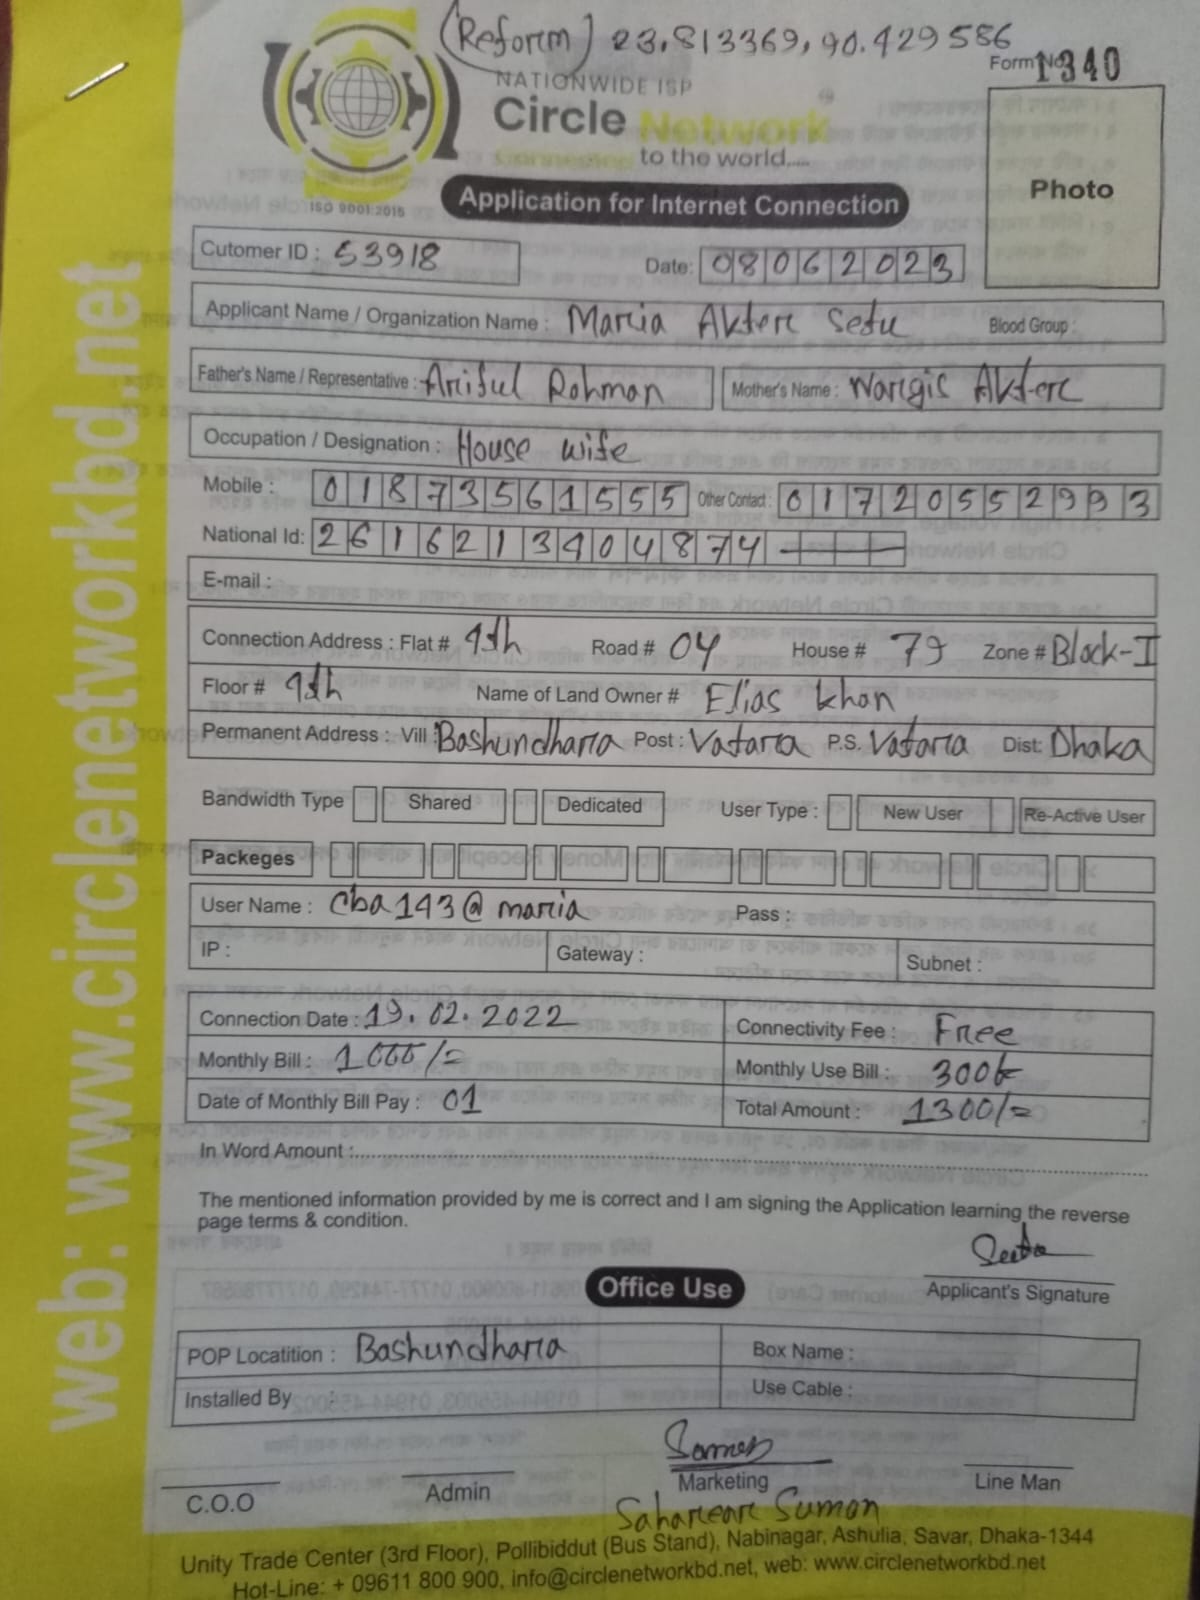 (Reform) 23.813369, 90.429586
Form No 1340
NATIONWIDE ISP
Circle Network
to the world.....
ISO 9001:2015
Application for Internet Connection
Photo
Cutomer ID : 53918
Date: 08062023
Applicant Name / Organization Name : Maria Akter Setu Blood Group :
Father's Name / Representative : Ariful Rohman Mother's Name : Nargis Akter
Occupation / Designation : House wife
Mobile : 01873561555 Other Contact : 01720552993
National Id: 26162134 04874
E-mail :
Connection Address : Flat # 9th Road # 04 House # 79 Zone # Block-I
Floor # 9th Name of Land Owner # Elias khan
Permanent Address : Vill : Bashundhara Post : Vatara P.S. Vatara Dist: Dhaka
Bandwidth Type Shared Dedicated User Type : New User Re-Active User
Packeges
User Name : cba143@maria Pass :
IP : Gateway : Subnet :
Connection Date : 19.02.2022 Connectivity Fee : Free
Monthly Bill : 1000/= Monthly Use Bill : 300/=
Date of Monthly Bill Pay : 01 Total Amount : 1300/=
In Word Amount :
The mentioned information provided by me is correct and I am signing the Application learning the reverse
page terms & condition.
Applicant's Signature
Office Use
POP Locatition : Bashundhara Box Name :
Installed By : Use Cable :
C.O.O Admin Marketing Line Man
Sahareare Sumon
Unity Trade Center (3rd Floor), Pollibiddut (Bus Stand), Nabinagar, Ashulia, Savar, Dhaka-1344
Hot-Line: + 09611 800 900, info@circlenetworkbd.net, web: www.circlenetworkbd.net
web: www.circlenetworkbd.net